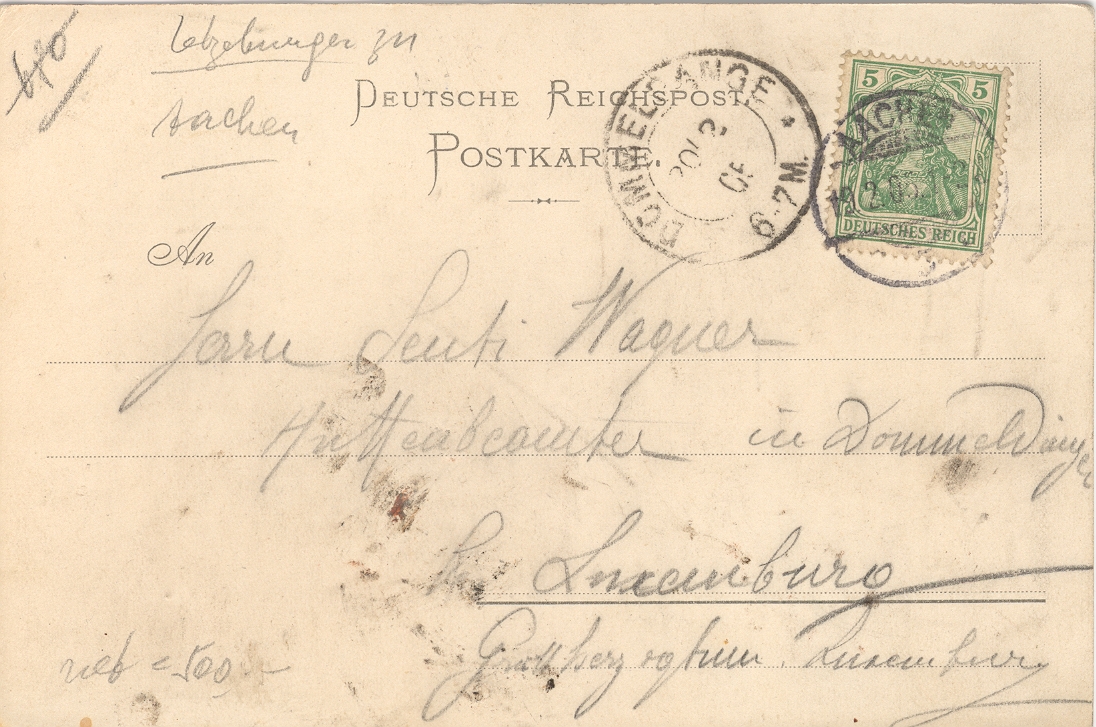 Letzeburger zu
Aachen
DEUTSCHE REICHSPOST.
POSTKARTE.
DOMMELDANGE
6-7M.
5 5
AACHEN
DEUTSCHES REICH
An
Herrn Wagner
Hüttenbeamter in Dommeldingen
Luxemburg
Großherzogthum Luxemburg
= 500 -